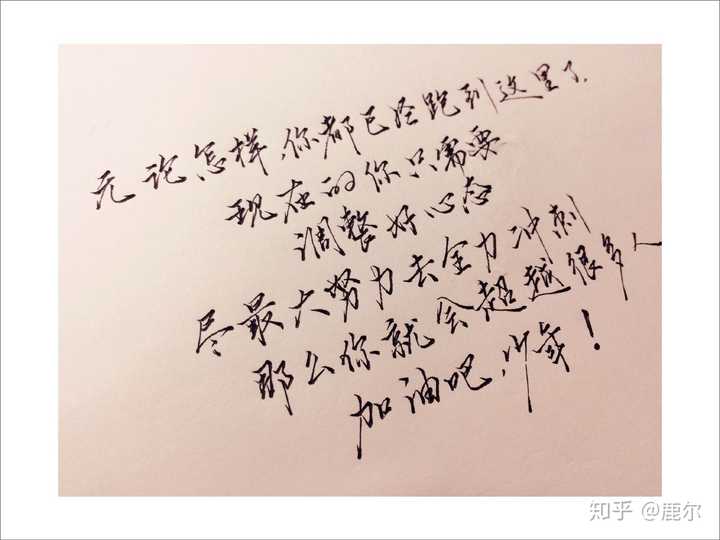 无论怎样,你都已经跑到这里了.
现在的你只需要
调整好心态
尽最大努力去全力冲刺
那么你就会超越很多人
加油吧,少年!
知乎 @鹿尔